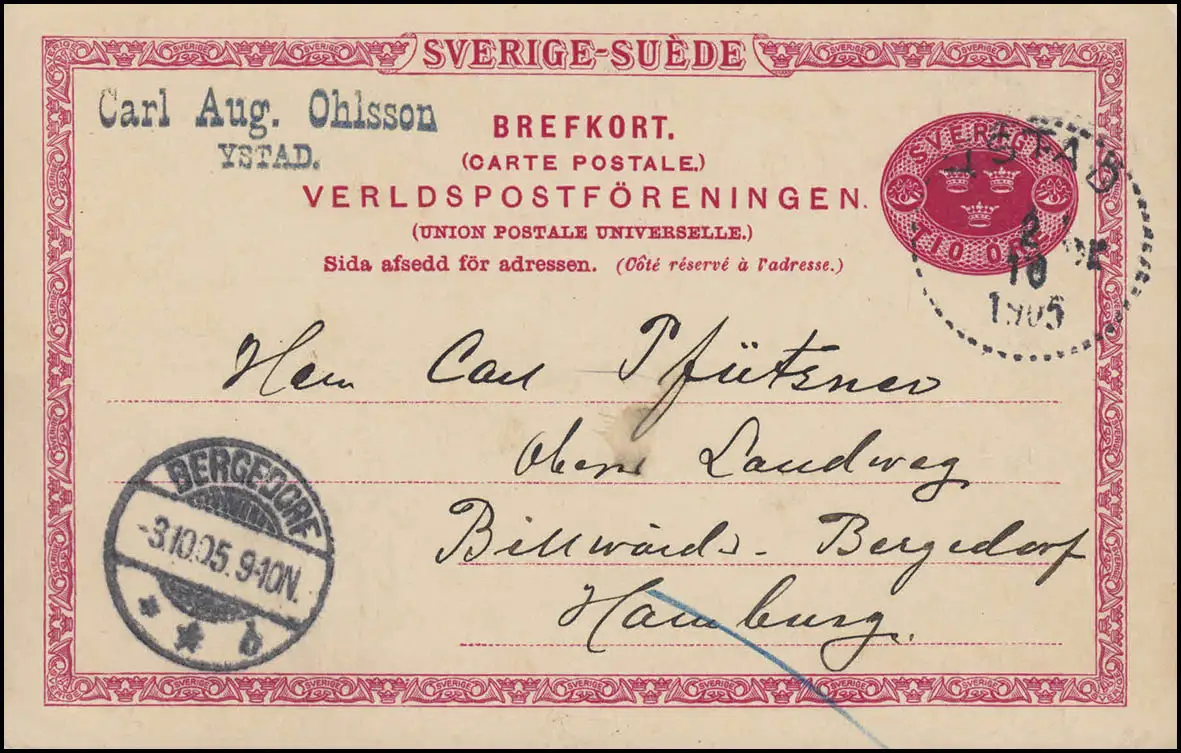 SVERIGE-SUÈDE
Carl Aug. Ohlsson
YSTAD.
BREFKORT.
(CARTE POSTALE.)
VERLDSPOSTFÖRENINGEN.
(UNION POSTALE UNIVERSELLE.)
Sida afsedd för adressen. (Côté réservé à l'adresse.)
SVERIGE
TIO ÖRE
YSTAD
2
10
1905
Herrn Carl Pfützner
Oberer Landweg
Billwärds-Bergedorf
Hamburg.
BERGEDORF
-3.10.05. 9-10N.
* * b